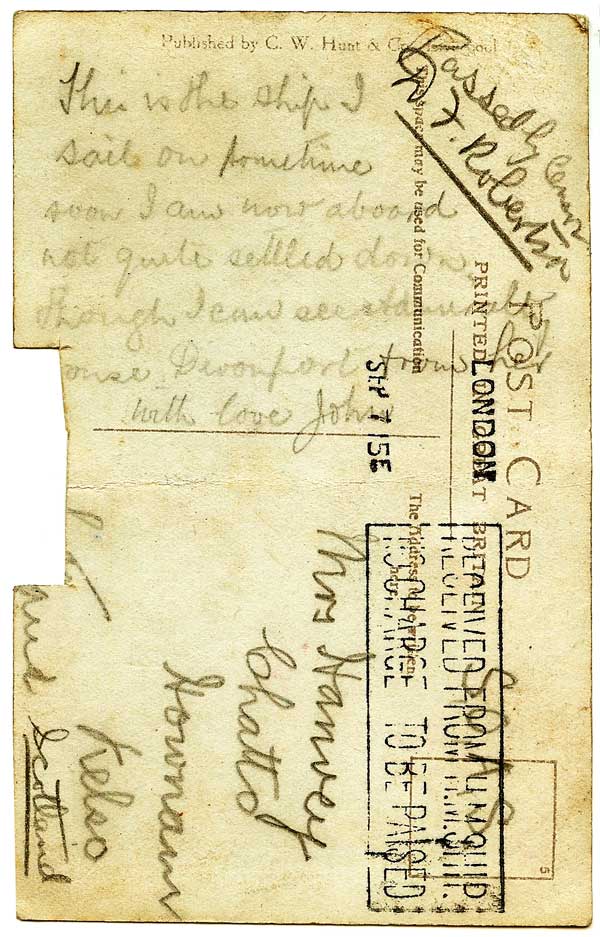 Published by C. W. Hunt & Co., Liverpool
This is the ship I
sail on sometime
soon I am now aboard
not quite settled down
though I can see Admiralty
House Devonport from her
with love John
Passed by Censor
F. Robertson
This space may be used for Communication
POST CARD
PRINTED IN GREAT BRITAIN
LONDON
SEP 7 15
The Address to be written here.
RECEIVED FROM H.M. SHIP.
NO CHARGE TO BE RAISED
Mrs Hanvey
Chatto
Hownam
Kelso
Scotland